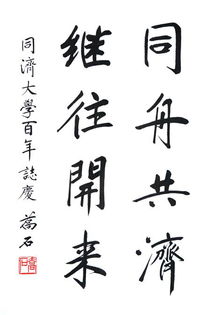 同舟共濟
继往開来
同濟大學百年誌慶 蒿石